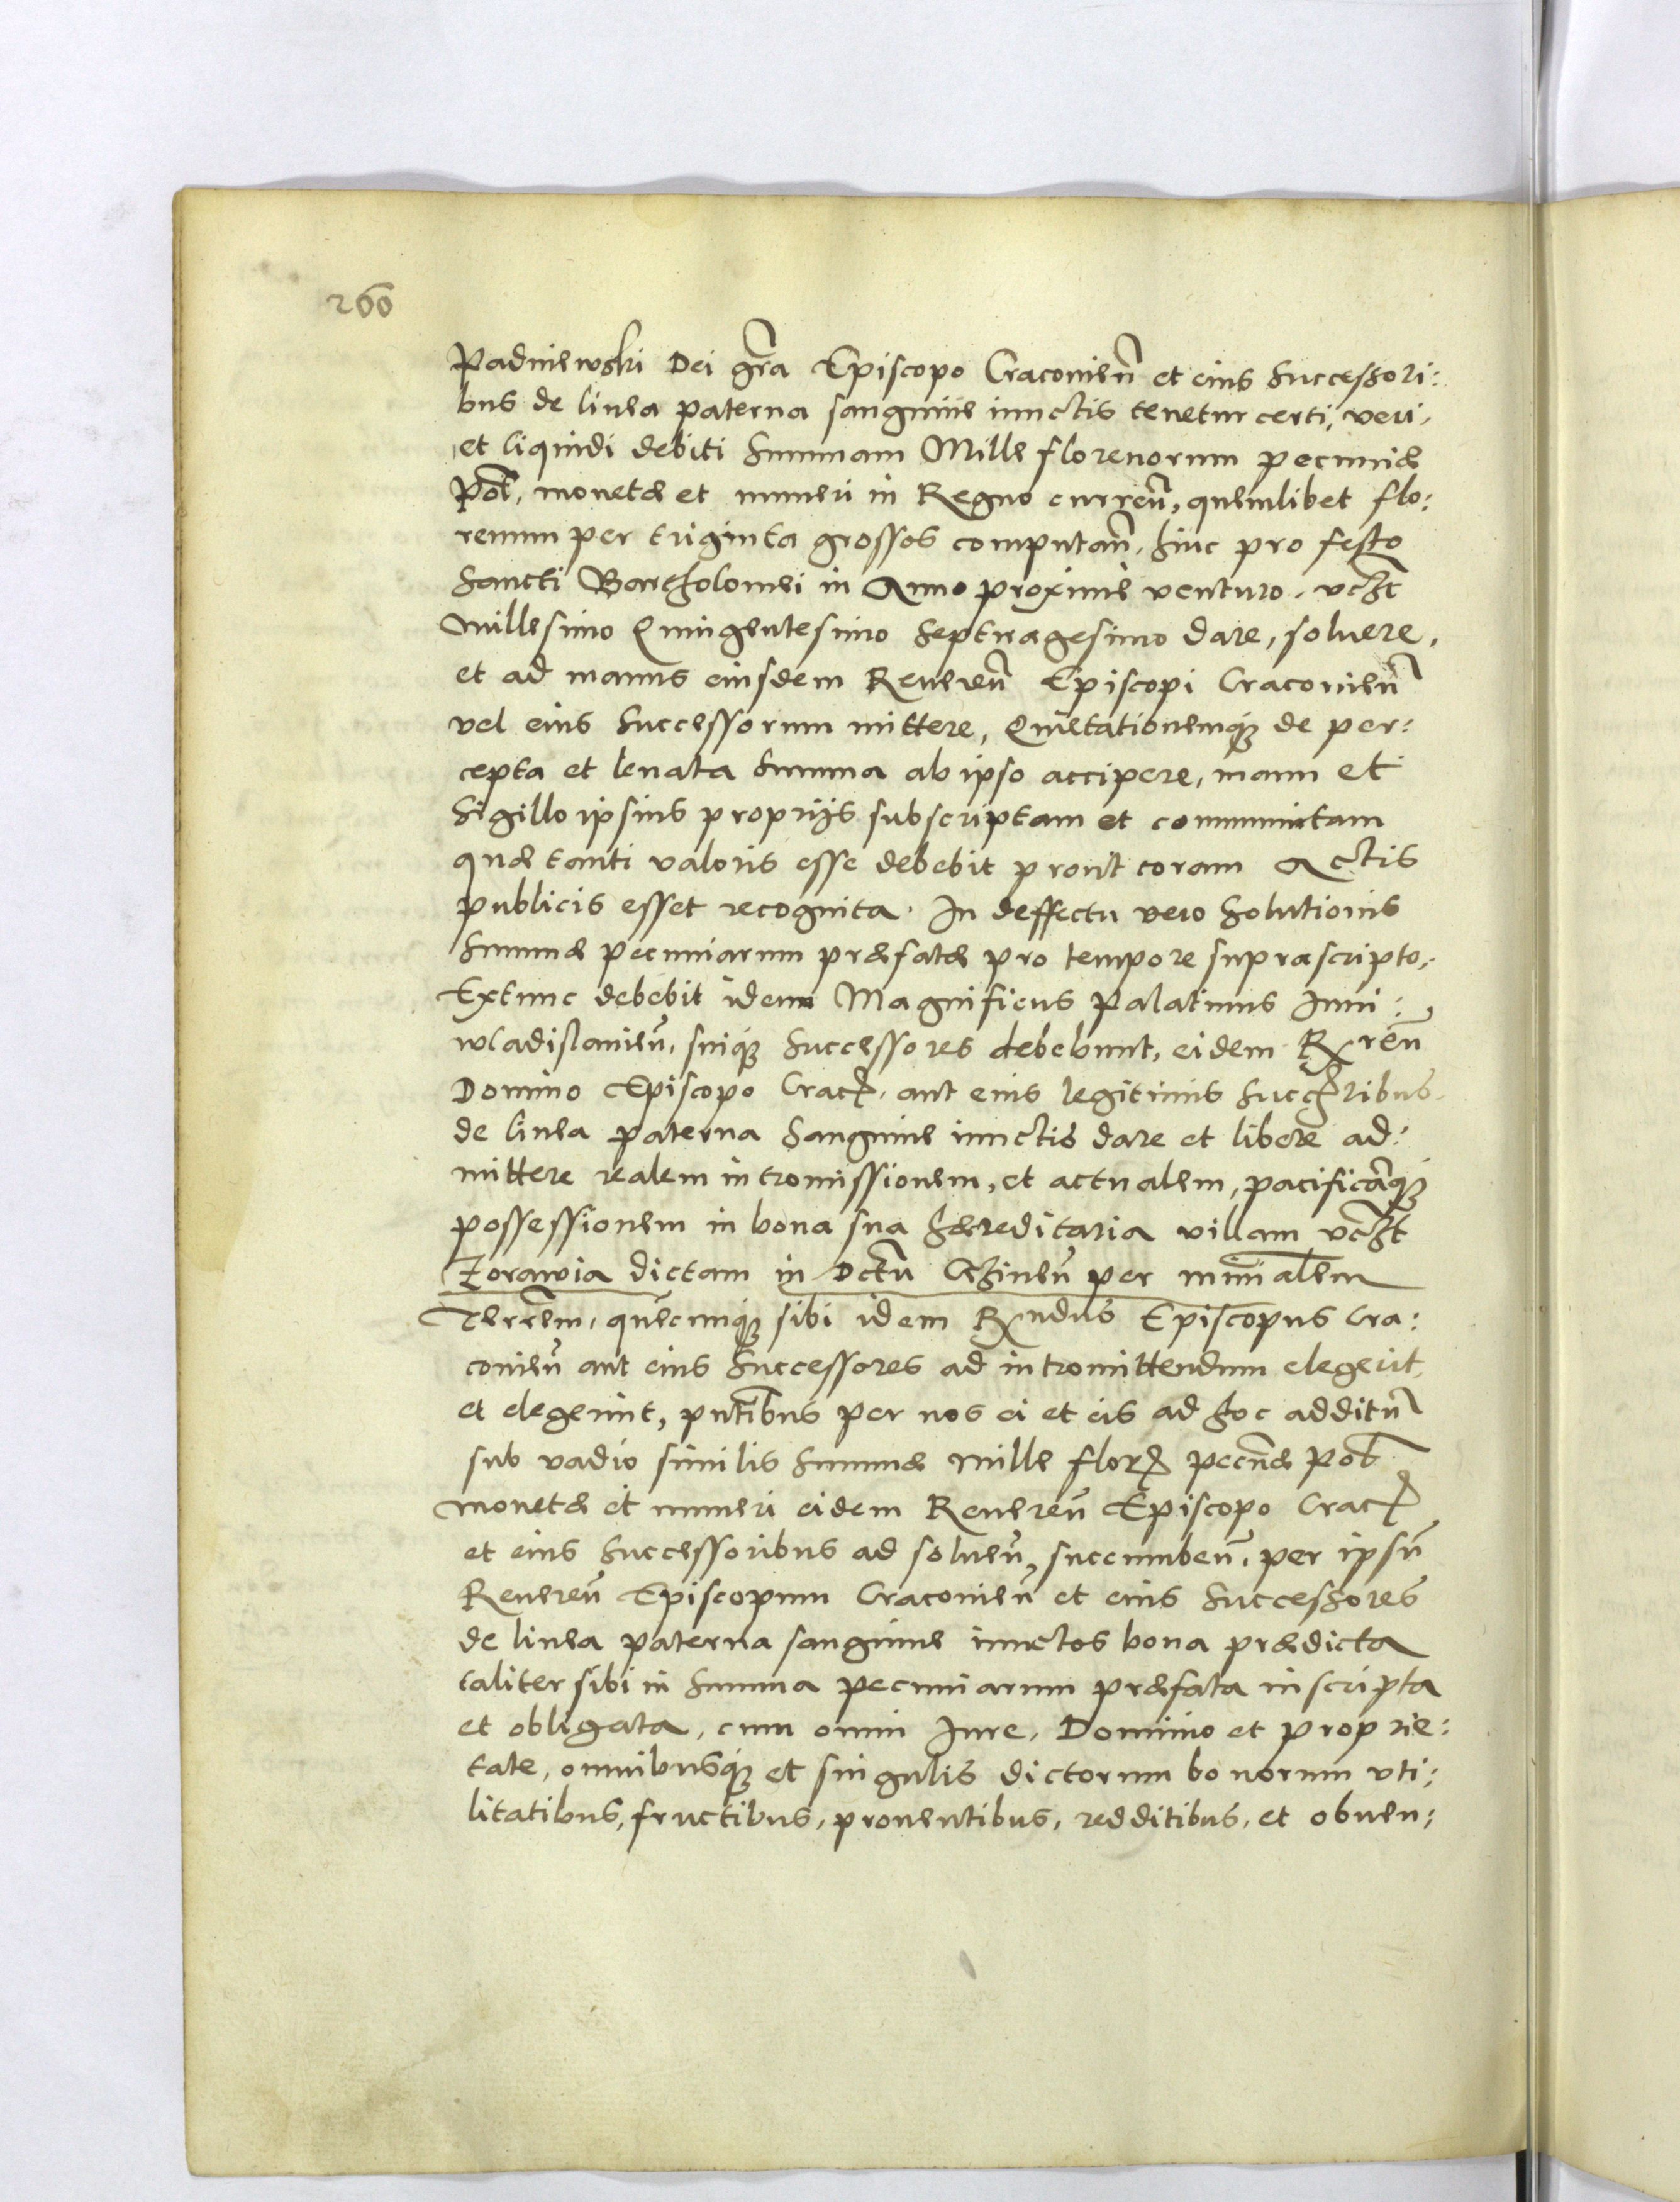 260
Padniewski Dei gr̃a Episcopo Cracouieñ et eius Successori:
bus de linea paterna sanguine iunctis tenetur certi, veri,
et liquidi debiti Summam Mille florenorum pecuniæ
Pol̃, monetæ et numeri in Regno curreñ, quemlibet flo:
renum per triginta grossos computañ, hinc pro festo
Sancti Bartholomei in Anno proxime venturo,
Millesimo Quingentesimo Septuagesimo dare, soluere,
et ad manus eiusdem Reuereñ Episcopi Cracouieñ
vel eius Successorum mittere, Quietationemq́ȝ de per:
cepta et leuata Summa ab ipso accipere, manu et
Sigillo ipsius proprijs subscriptam et communitam
quæ tanti valoris esse debebit prout coram Actis
publicis esset recognita. In deffectu vero Solutionis
Summæ pecuniarum præfatæ pro tempore suprascripto,
Extunc debebit idem Magnificus Palatinus Iuni:
wladislauieñ, suiq́ȝ Successores debebunt, eidem Rreñ
Domino Episcopo Crac, aut eius legitimis Succribus
de linea paterna Sanguine iunctis dare et libere ad:
mittere realem intromissionem, et actualem, pacificãq́ȝ
possessionem in bona sua hæreditaria villam
Zorawia dictam in per
Terrẽm, quẽcunq́ȝ sibi idem Rndus Episcopus Cra:
couieñ aut eius Successores ad intromittendum elegerit,
et elegerint, pñtibus per nos ei et eis ad hoc additũ
sub vadio similis Summæ Mille flor pecũæ Pol̃
monetæ et numeri eidem Reuereñ Episcopo Crac
et eius Successoribus ad solueñ, succumbeñ, per ipsũ
Reuereñ Episcopum Cracouieñ et eius Successores
de linea paterna sanguine iunctos bona prædicta
taliter sibi in Summa pecuniarum præfata inscripta
et obligata, cum omni Iure, Dominio et proprie:
tate, omnibusq́ȝ et singulis dictorum bonorum vti:
litatibus, fructibus, prouentibus, redditibus, et obuen: